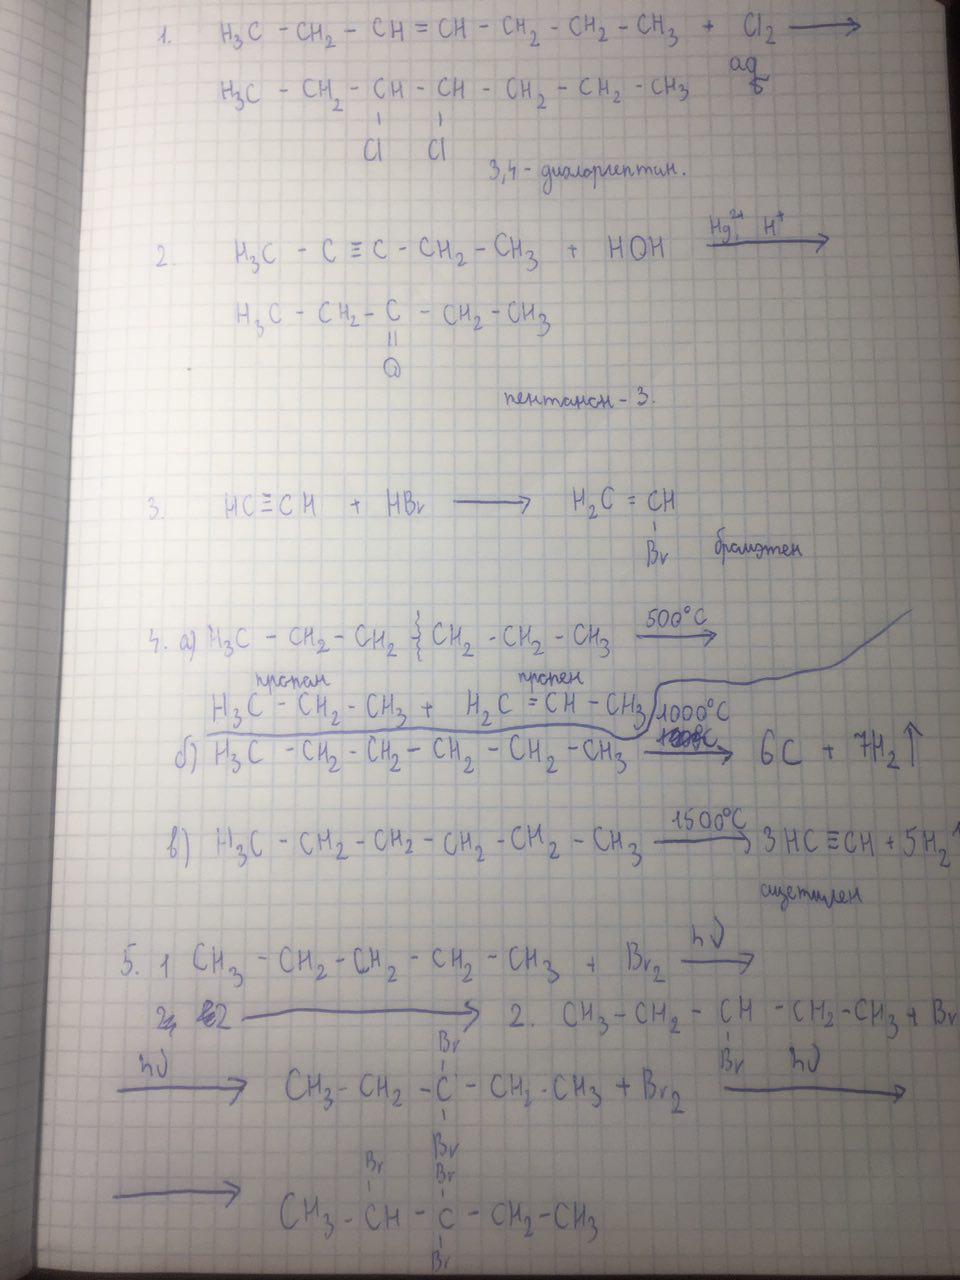 1. H₃C - CH₂ - CH = CH - CH₂ - CH₂ - CH₃ + Cl₂ →
H₃C - CH₂ - CH - CH - CH₂ - CH₂ - CH₃
Cl Cl
3,4 - дихлоргептан.
2. H₃C - C ≡ C - CH₂ - CH₃ + HOH Hg²⁺, H⁺ →
H₃C - CH₂ - C - CH₂ - CH₃
O
пентанон - 3.
3. HC≡CH + HBr → H₂C = CH
Br бромэтен
4. а) H₃C - CH₂ - CH₂ CH₂ - CH₂ - CH₃ 500°C →
пропан пропен
H₃C - CH₂ - CH₃ + H₂C = CH - CH₃
б) H₃C - CH₂ - CH₂ - CH₂ - CH₂ - CH₃ 1000°C → 6C + 7H₂↑
в) H₃C - CH₂ - CH₂ - CH₂ - CH₂ - CH₃ 1500°C → 3HC≡CH + 5H₂↑
ацетилен
5. 1 CH₃ - CH₂ - CH₂ - CH₂ - CH₃ + Br₂ hν →
→ 2. CH₃ - CH₂ - CH - CH₂ - CH₃ + Br
Br
Br
hν → CH₃ - CH₂ - C - CH₂ - CH₃ + Br₂ hν →
Br
Br Br
→ CH₃ - CH - C - CH₂ - CH₃
Br